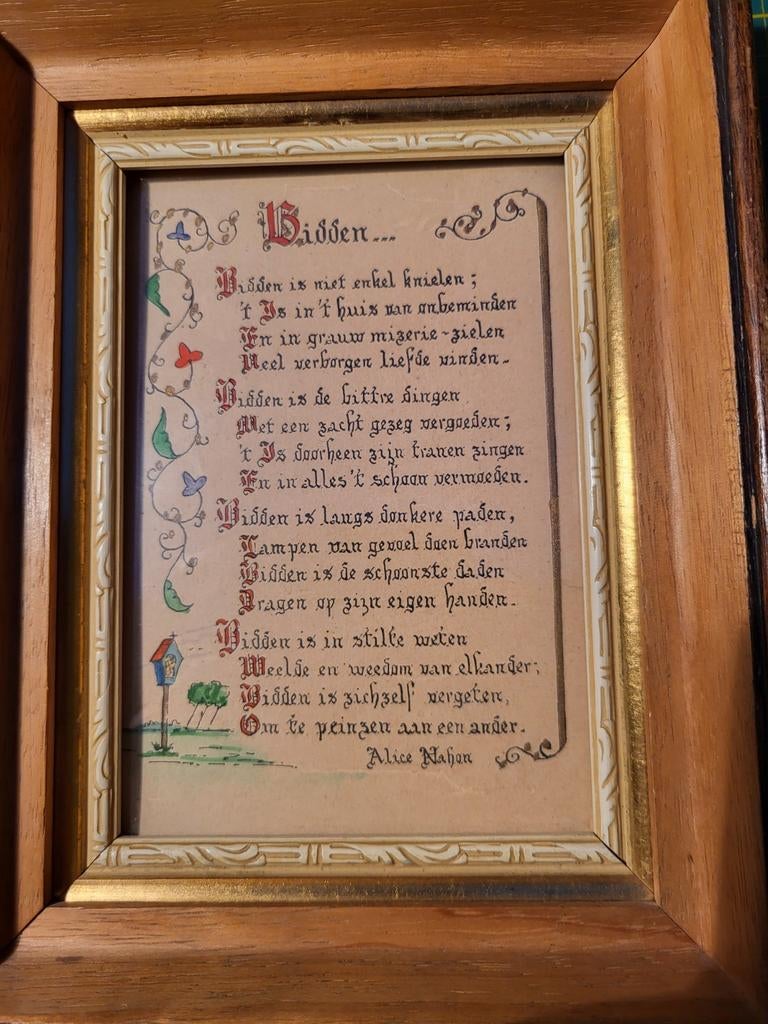 Bidden...
Bidden is niet enkel knielen;
't Is in 't huis van onbeminden
En in grauw mizerie-zielen
Veel verborgen liefde vinden.
Bidden is de bittre dingen
Met een zacht gezeg vergoeden;
't Is doorheen zijn tranen zingen
En in alles 't schoon vermoeden.
Bidden is langs donkere paden,
Lampen van gevoel doen branden
Bidden is de schoonste daden
Dragen op zijn eigen handen.
Bidden is in stilte weten
Weelde en weedom van elkander;
Bidden is zichzelf vergeten,
Om te peinzen aan een ander.
Alice Nahon